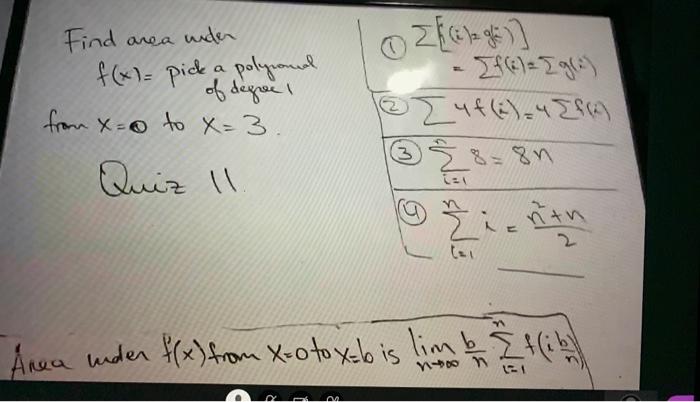 Find area under
f(x) = pick a polynomial
of degree 1
from x=0 to x=3.
Quiz 11.
① Σ[f(i)±g(i)]
= Σf(i)±Σg(i)
② Σ4f(i)=4Σf(i)
③ Σ_{i=1}^{n} 8 = 8n
④ Σ_{i=1}^{n} i = (n²+n)/2
Area under f(x) from x=0 to x=b is lim_{n→∞} b/n Σ_{i=1}^{n} f(i b/n)